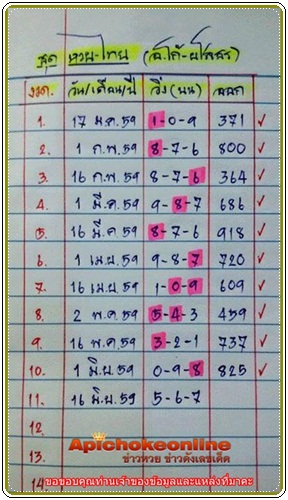 ชุด หวย-ไทย (อ.โก้-ยโสธร)
งวด. วัน/เดือน/ปี วิ่ง(บน) ออก
1. 17 ม.ค.59 1-0-9 371 ✓
2. 1 ก.พ.59 8-7-6 800 ✓
3. 16 ก.พ.59 8-7-6 364 ✓
4. 1 มี.ค.59 9-8-7 686 ✓
5. 16 มี.ค 59 8-7-6 918 ✓
6. 1 เม.ย.59 9-8-7 720 ✓
7. 16 เม.ย.59 1-0-9 609 ✓
8. 2 พ.ค.59 5-4-3 459 ✓
9. 16 พ.ค.59 3-2-1 737 ✓
10. 1 มิ.ย.59 0-9-8 825 ✓
11. 16 มิ.ย.59 5-6-7
12.
13.
Apichokeonline
ข่าวหวย ข่าวดังเลขเด็ด
14.
ขอขอบคุณท่านเจ้าของข้อมูลและแหล่งที่มาค่ะ